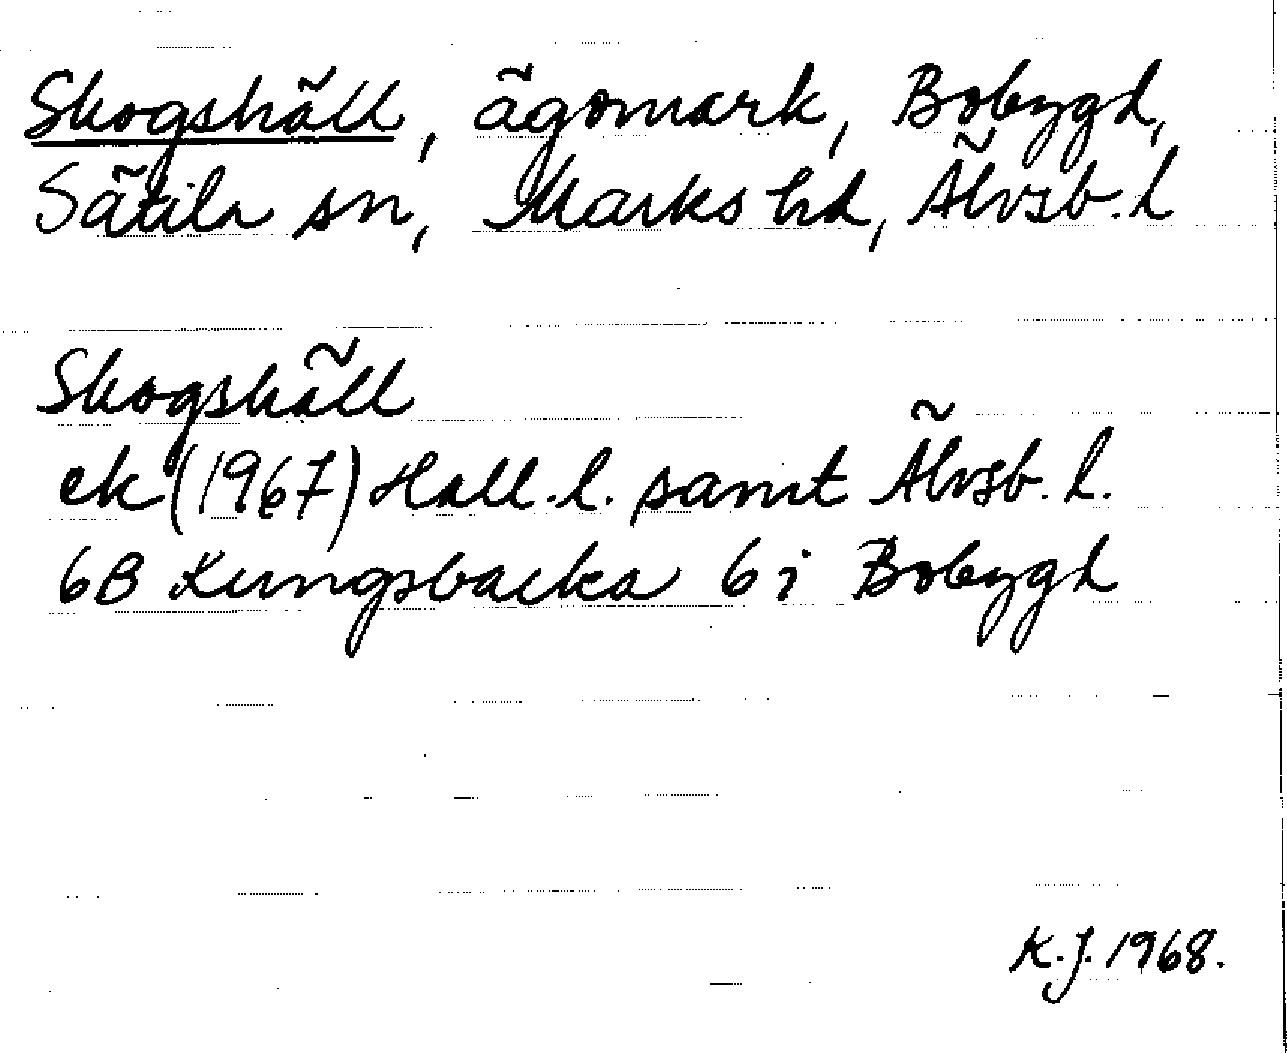 Skogshäll, ägomark, Bobygd,
Sätila sn, Marks hd, Älvsb. l
Skogshäll
ek (1967) Hall. l. samt Älvsb. l.
6B Kungsbacka 6 i Bobygd
K.J. 1968.